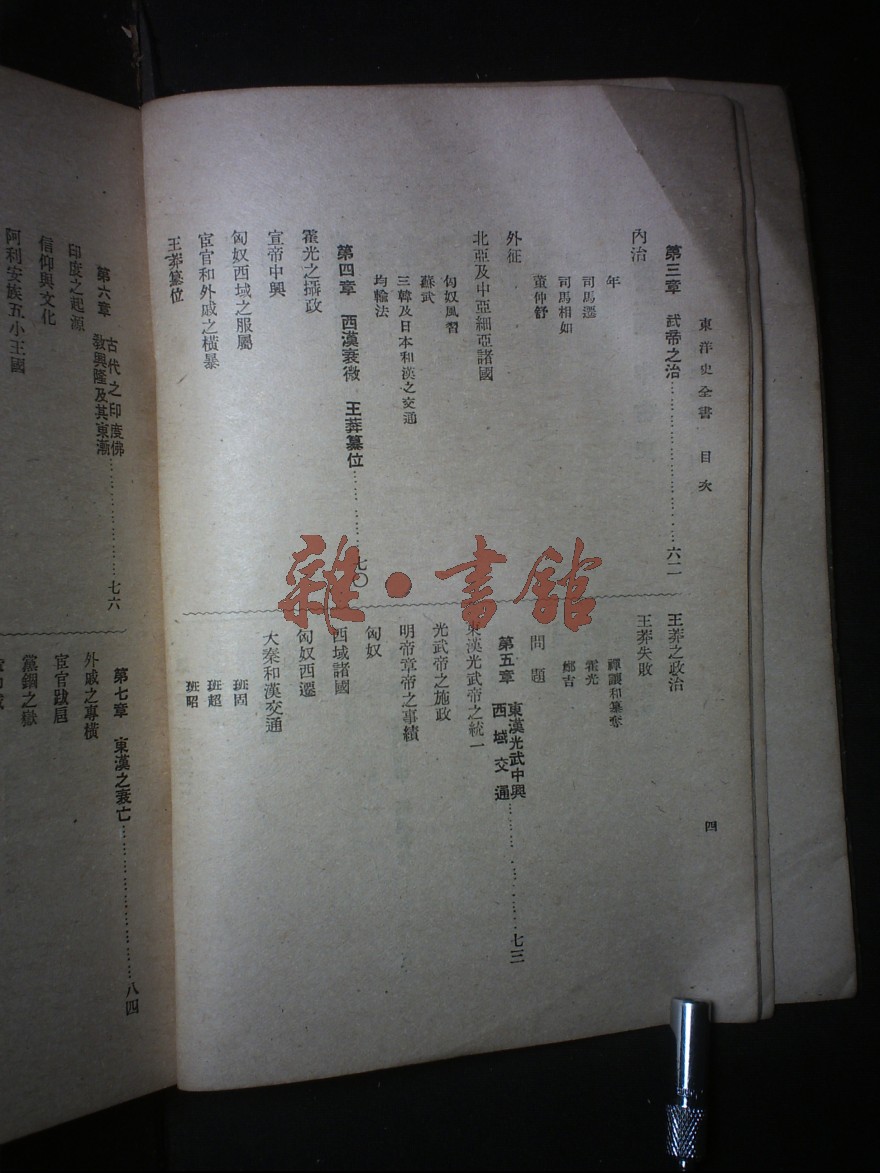 東洋史全書 目次
四
第三章 武帝之治……六一
內治
年
司馬遷
司馬相如
董仲舒
外征
北亞及中亞細亞諸國
匈奴風習
蘇武
三韓及日本和漢之交通
均輸法
第四章 西漢衰微 王莽篡位……七〇
霍光之攝政
宣帝中興
匈奴西域之服屬
宦官和外戚之橫暴
王莽篡位
王莽之政治
王莽失敗
禪讓和篡奪
霍光
鄭吉
問題
第五章 東漢光武中興
西域交通……七三
東漢光武帝之統一
光武帝之施政
明帝章帝之事績
匈奴
西域諸國
匈奴西遷
大秦和漢交通
班固
班超
班昭
第六章 古代之印度佛
教興隆及其東漸……七六
印度之起源
信仰與文化
阿利安族五小王國
第七章 東漢之衰亡……八四
外戚之專橫
宦官跋扈
黨錮之獄
雜·書館